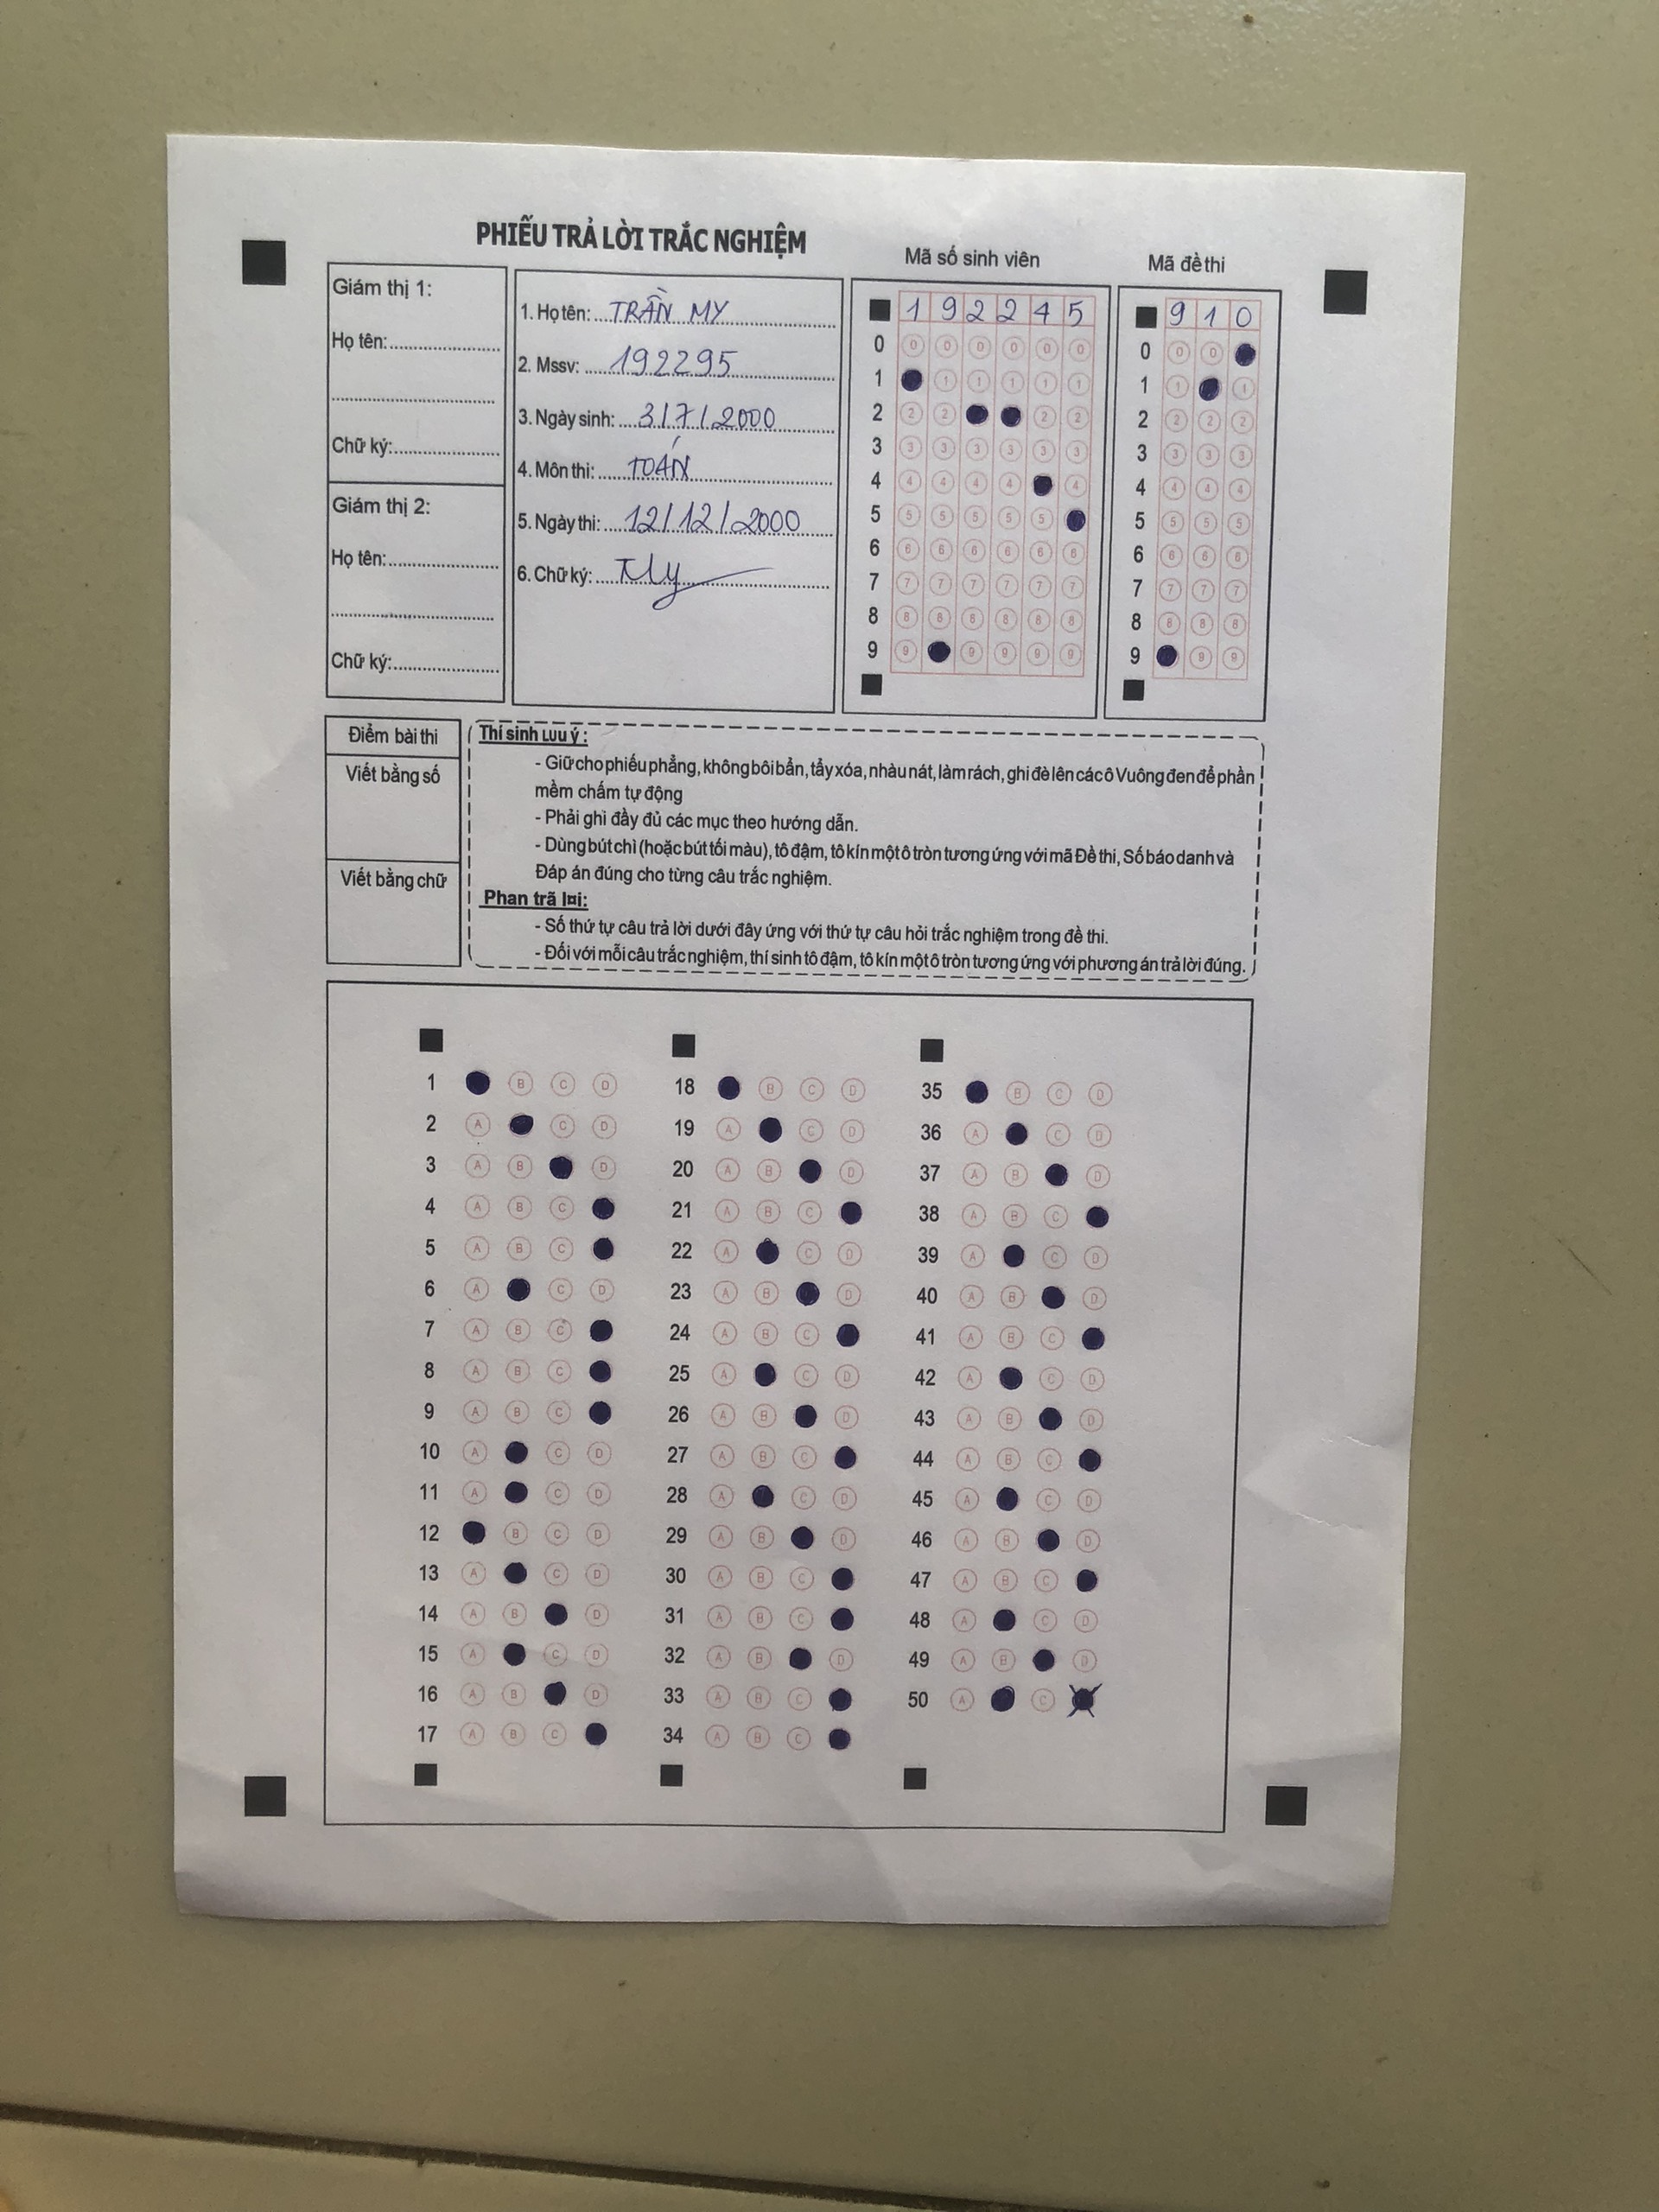 PHIẾU TRẢ LỜI TRẮC NGHIỆM
Giám thị 1:
Họ tên:
Chữ ký:
Giám thị 2:
Họ tên:
Chữ ký:
1. Họ tên: TRẦN MY
2. Mssv: 192295
3. Ngày sinh: 3/7/2000
4. Môn thi: TOÁN
5. Ngày thi: 12/12/2000
6. Chữ ký: TMy
Mã số sinh viên
1 9 2 2 4 5
0 0 0 0 0 0 0
1 1 1 1 1 1
2 2 2 2 2
3 3 3 3 3 3 3
4 4 4 4 4 4
5 5 5 5 5 5
6 6 6 6 6 6 6
7 7 7 7 7 7 7
8 8 8 8 8 8 8
9 9 9 9 9 9
Mã đề thi
9 1 0
0 0 0
1 1 1
2 2 2 2
3 3 3 3
4 4 4 4
5 5 5 5
6 6 6 6
7 7 7 7
8 8 8 8
9 9 9
Điểm bài thi
Viết bằng số
Viết bằng chữ
Thí sinh LƯu ý :
- Giữ cho phiếu phẳng, không bôi bẩn, tẩy xóa, nhàu nát, làm rách, ghi đè lên các ô Vuông đen để phần
mềm chấm tự động
- Phải ghi đầy đủ các mục theo hướng dẫn.
- Dùng bút chì (hoặc bút tối màu), tô đậm, tô kín một ô tròn tương ứng với mã Đề thi, Số báo danh và
Đáp án đúng cho từng câu trắc nghiệm.
Phan trã l¤i:
- Số thứ tự câu trả lời dưới đây ứng với thứ tự câu hỏi trắc nghiệm trong đề thi.
- Đối với mỗi câu trắc nghiệm, thí sinh tô đậm, tô kín một ô tròn tương ứng với phương án trả lời đúng.
1 B C D
2 A C D
3 A B D
4 A B C
5 A B C
6 A C D
7 A B C
8 A B C
9 A B C
10 A C D
11 A C D
12 B C D
13 A C D
14 A B D
15 A C D
16 A B D
17 A B C
18 B C D
19 A C D
20 A B D
21 A B C
22 A C D
23 A B D
24 A B C
25 A C D
26 A B D
27 A B C
28 A C D
29 A B D
30 A B C
31 A B C
32 A B D
33 A B C
34 A B C
35 B C D
36 A C D
37 A B D
38 A B C
39 A C D
40 A B D
41 A B C
42 A C D
43 A B D
44 A B C
45 A C D
46 A B D
47 A B C
48 A C D
49 A B D
50 A C